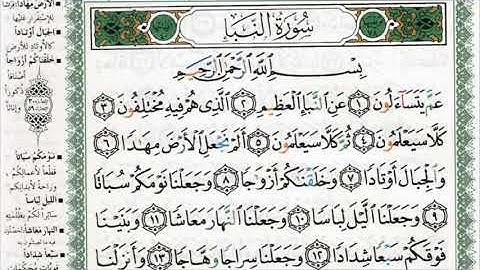 سُورَةُ النَّبَإِ
بِسْمِ اللَّهِ الرَّحْمَٰنِ الرَّحِيمِ
عَمَّ يَتَسَآءَلُونَ ١ عَنِ ٱلنَّبَإِ ٱلْعَظِيمِ ٢ ٱلَّذِى هُمْ فِيهِ مُخْتَلِفُونَ ٣
كَلَّا سَيَعْلَمُونَ ٤ ثُمَّ كَلَّا سَيَعْلَمُونَ ٥ أَلَمْ نَجْعَلِ ٱلْأَرْضَ مِهَٰدًا ٦
وَٱلْجِبَالَ أَوْتَادًا ٧ وَخَلَقْنَٰكُمْ أَزْوَٰجًا ٨ وَجَعَلْنَا نَوْمَكُمْ سُبَاتًا
٩ وَجَعَلْنَا ٱلَّيْلَ لِبَاسًا ١٠ وَجَعَلْنَا ٱلنَّهَارَ مَعَاشًا ١١ وَبَنَيْنَا
فَوْقَكُمْ سَبْعًا شِدَادًا ١٢ وَجَعَلْنَا سِرَاجًا وَهَّاجًا ١٣ وَأَنزَلْنَا
الأرض مهادا
للاستقرار عليها
الجبال أوتادا
كالأوتاد للأرض
خلقناكم أزواجا
أصنافا
ذكورا
وإناثا
نومكم سباتا
قطعا لأعمالكم
وراحة لأبدانكم
الليل لباسا
ساترا لكم بظلمته
النهار معاشا
سبعا شدادا